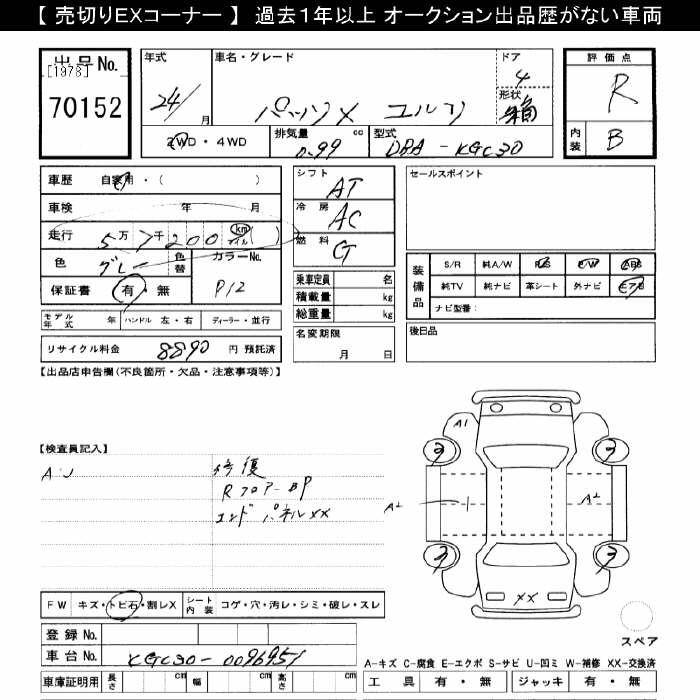 【 売切りEXコーナー 】 過去1年以上 オークション出品歴がない車両
出品No.
[1978]
70152
年式
24/
月
車名・グレード
パッソ X
ドア
4
形状
箱
評価点
R
内装
B
2WD・4WD
排気量
0.99
cc
型式
DBA-KGC30
車歴 自家用・( )
車検 年 月
走行 5万7千200 km マイル ( )
色 グレー
色替
カラーNo.
P12
保証書 有・無
シフト
AT
冷房
AC
燃料
G
乗車定員 名
積載量 kg
総重量 kg
名変期限
月 日
セールスポイント
装備品
S/R 純A/W P/S P/W ABS
純TV 純ナビ 革シート 外ナビ エアB
ナビ型番:
後日品
モデル年式 年 ハンドル 左・右 ディーラー・並行
リサイクル料金 8890 円 預託済
【出品店申告欄(不良箇所・欠品・注意事項等)】
【検査員記入】
修復
Rフロアー BP
エンドパネルXX
A1
A2
A2
XX
スペア
FW キズ・トビ石・割レX シート内装 コゲ・穴・汚レ・シミ・破レ・スレ
登録No.
車台No. KGC30-0096951
車庫証明用 長さ cm 幅 cm 高さ cm
A-キズ C-腐食 E-エクボ S-サビ U-凹ミ W-補修 XX-交換済
工具 有・無 ジャッキ 有・無